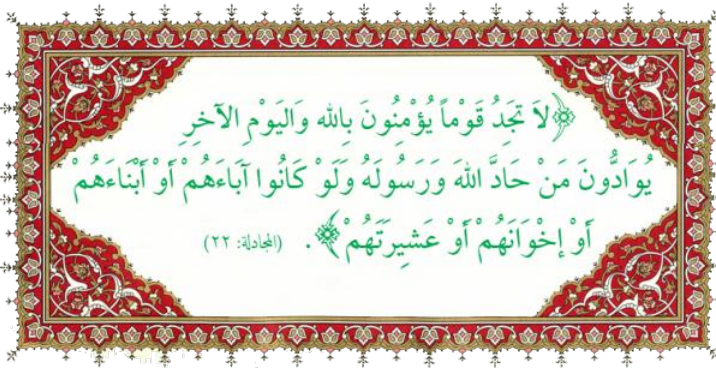 ﴿لاَ تَجِدُ قَوْماً يُؤْمِنُونَ بِالله وَاليَوْمِ الآخِرِ
يُوَادُّونَ مَنْ حَادَّ اللهَ وَرَسُولَهُ وَلَوْ كَانُوا آبَاءَهُمْ أَوْ أَبْنَاءَهُمْ
أَوْ إِخْوَانَهُمْ أَوْ عَشِيرَتَهُمْ﴾. (المجادلة: ٢٢)